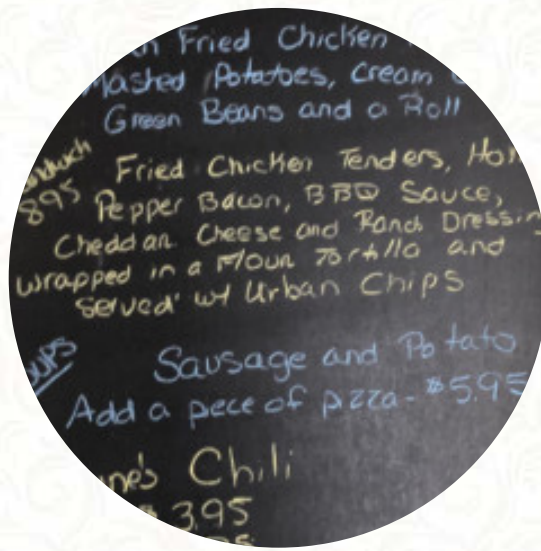 Fried Chicken
Mashed Potatoes, Cream
Green Beans and a Roll
Fried Chicken Tenders, Hon
895 Pepper Bacon, BBQ Sauce,
Cheddar Cheese and Ranch Dressin
wrapped in a Flour Tortilla and
served w/ Urban Chips
Sausage and Potato
Add a pece of pizza - $5.95
Chili
3.95